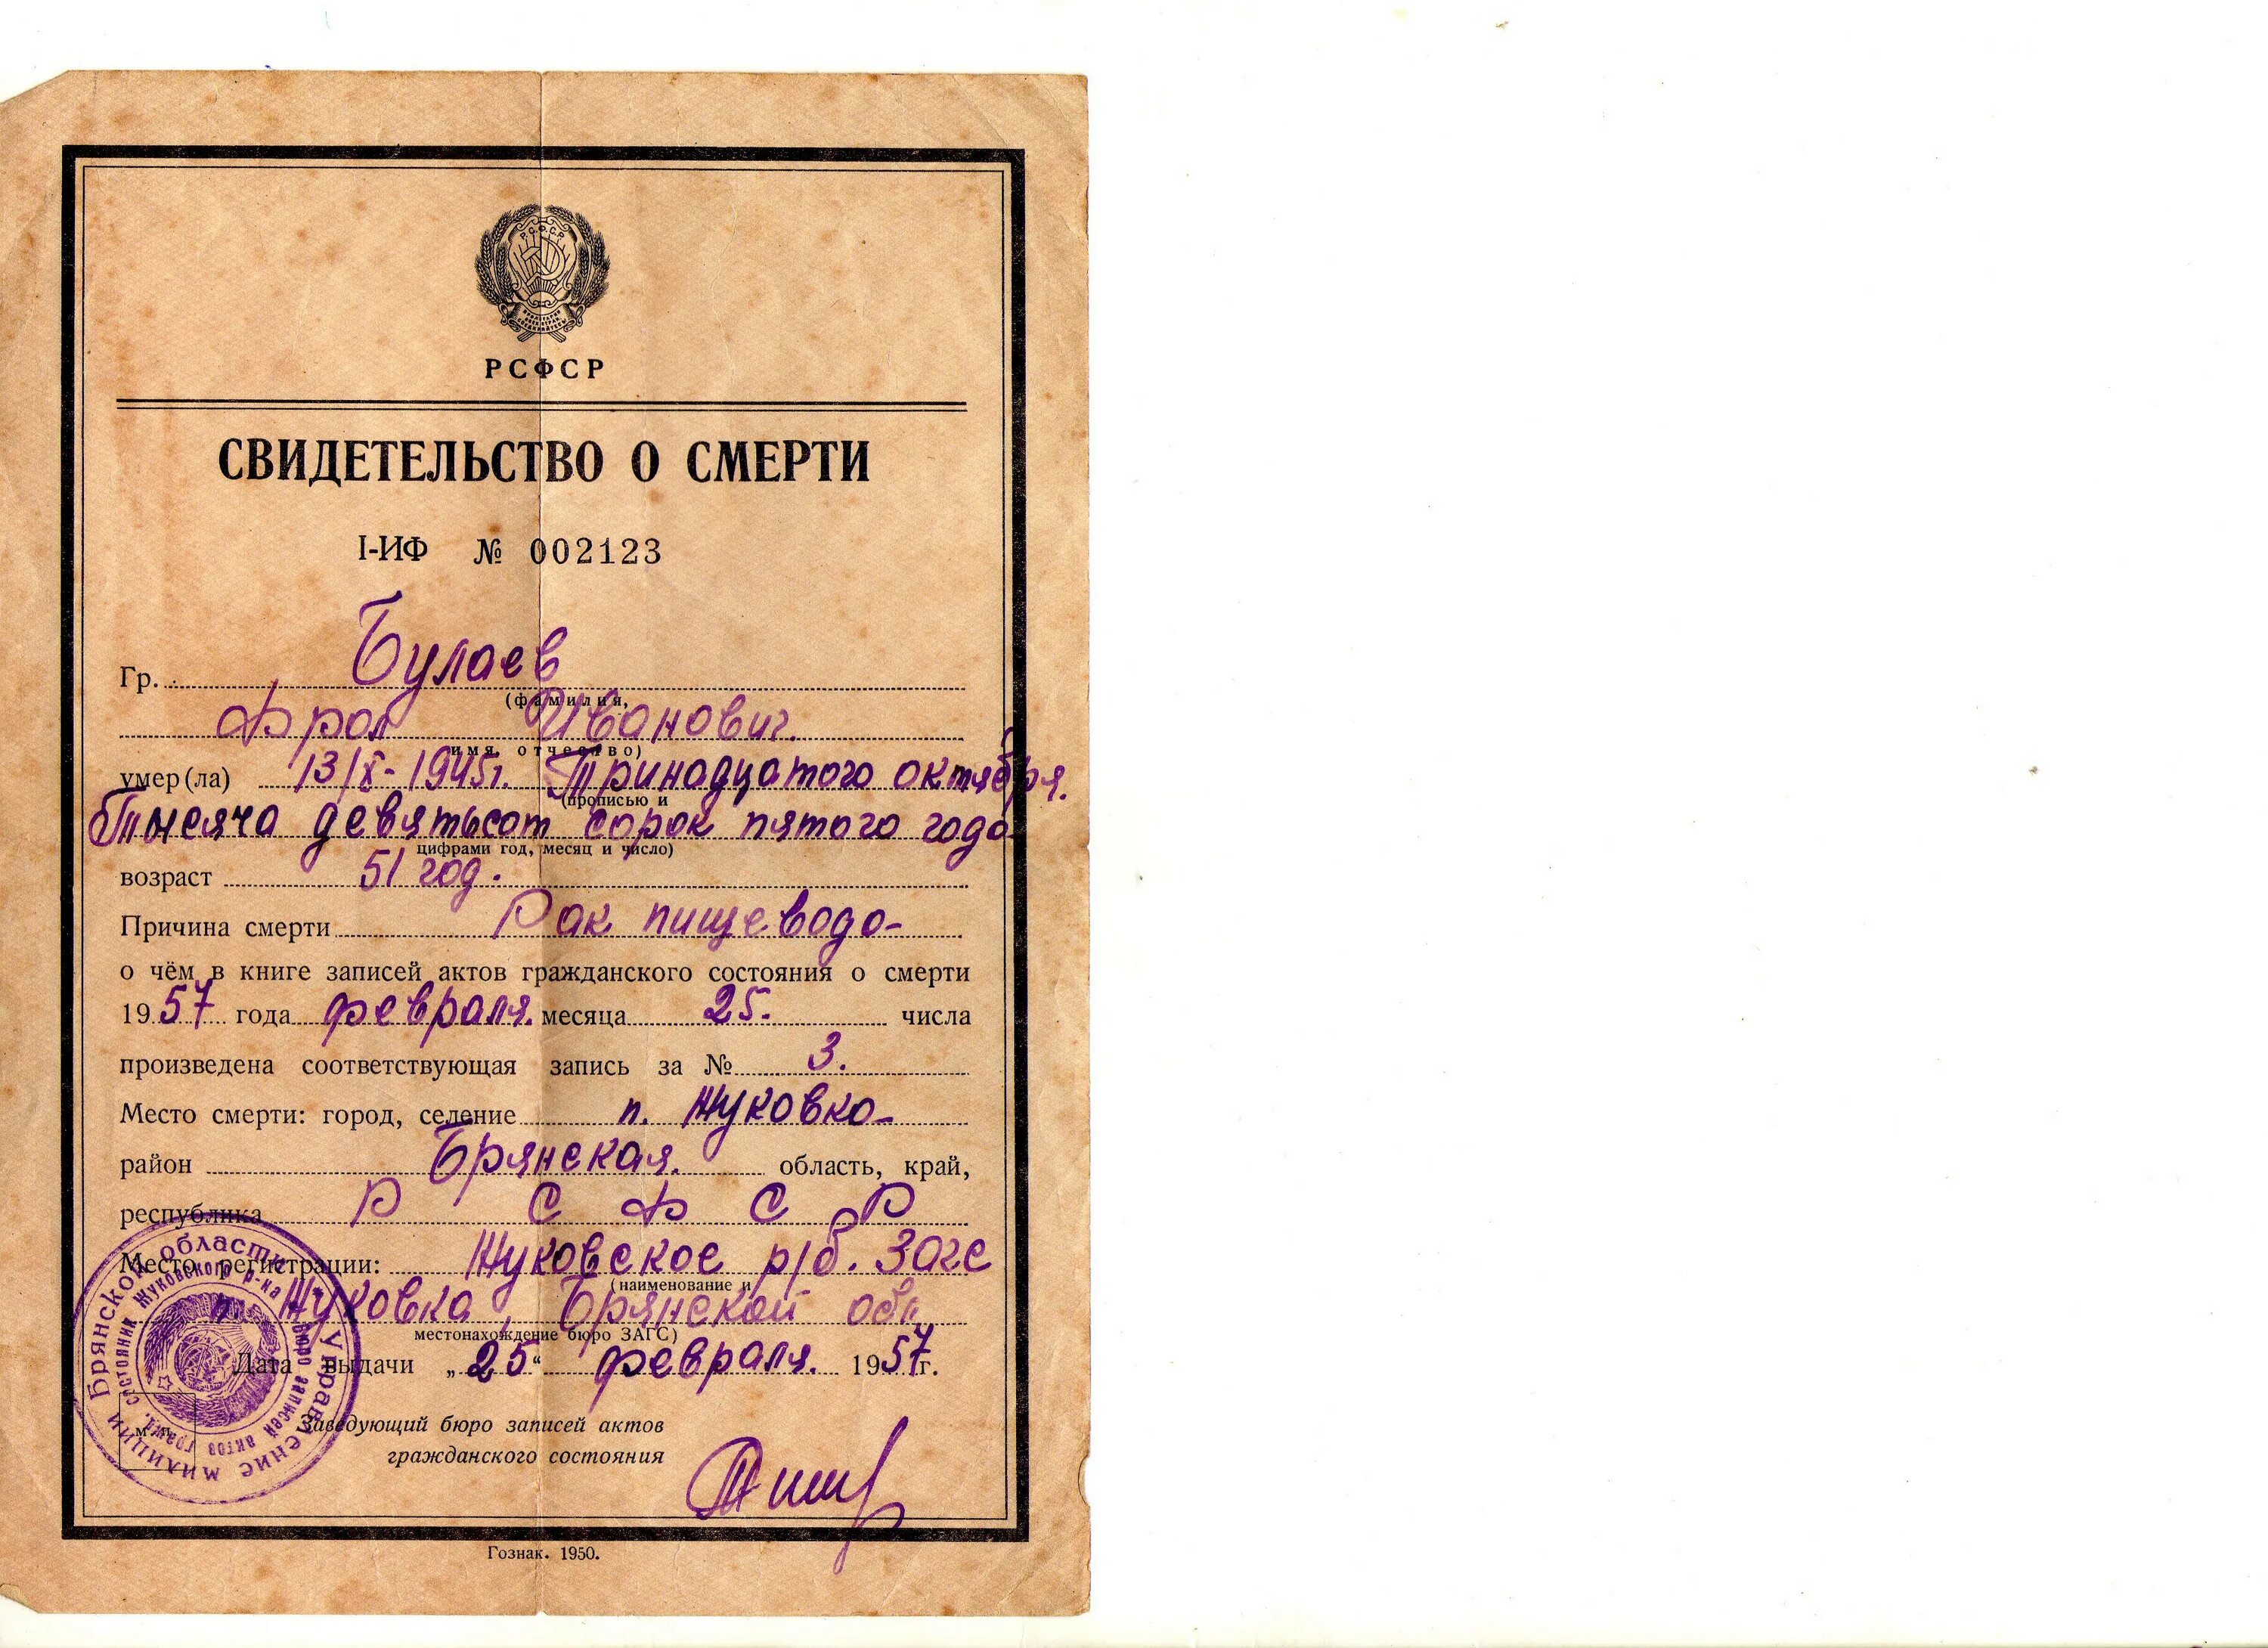 Р.С.Ф.С.Р.
РСФСР
СВИДЕТЕЛЬСТВО О СМЕРТИ
I-ИФ № 002123
Гр. Булаев
(фамилия,
Фрол Иванович.
имя, отчество)
умер(ла) 13/X-1945г. Тринадцатого октября.
(прописью и
Тысяча девятьсот сорок пятого года
цифрами год, месяц и число)
возраст 51 год.
Причина смерти Рак пищевода
о чём в книге записей актов гражданского состояния о смерти
1957 года февраля. месяца 25. числа
произведена соответствующая запись за № 3.
Место смерти: город, селение п. Жуковка
район Брянская. область, край,
республика Р С Ф С Р
Место регистрации: Жуковское р/б. Загс
(наименование и
п. Жуковка, Брянской обл
местонахождение бюро ЗАГС)
Дата выдачи „25“ февраля. 1957г.
Заведующий бюро записей актов
гражданского состояния
м.
Управление милиции Брянской области
бюро записей актов гражд. состояний Жуковского р-на
Гознак. 1950.